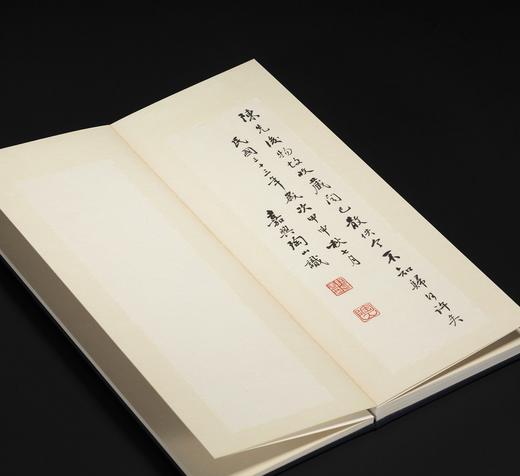 陳先後物故收藏聞已散佚不知歸何許矣
民國三十三年歲次甲申秋七月
嘉興陶識